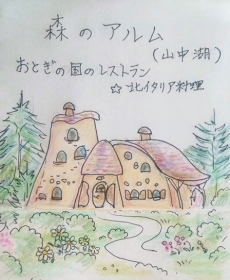 森のアルム
(山中湖)
おとぎの国のレストラン
☆北イタリア料理